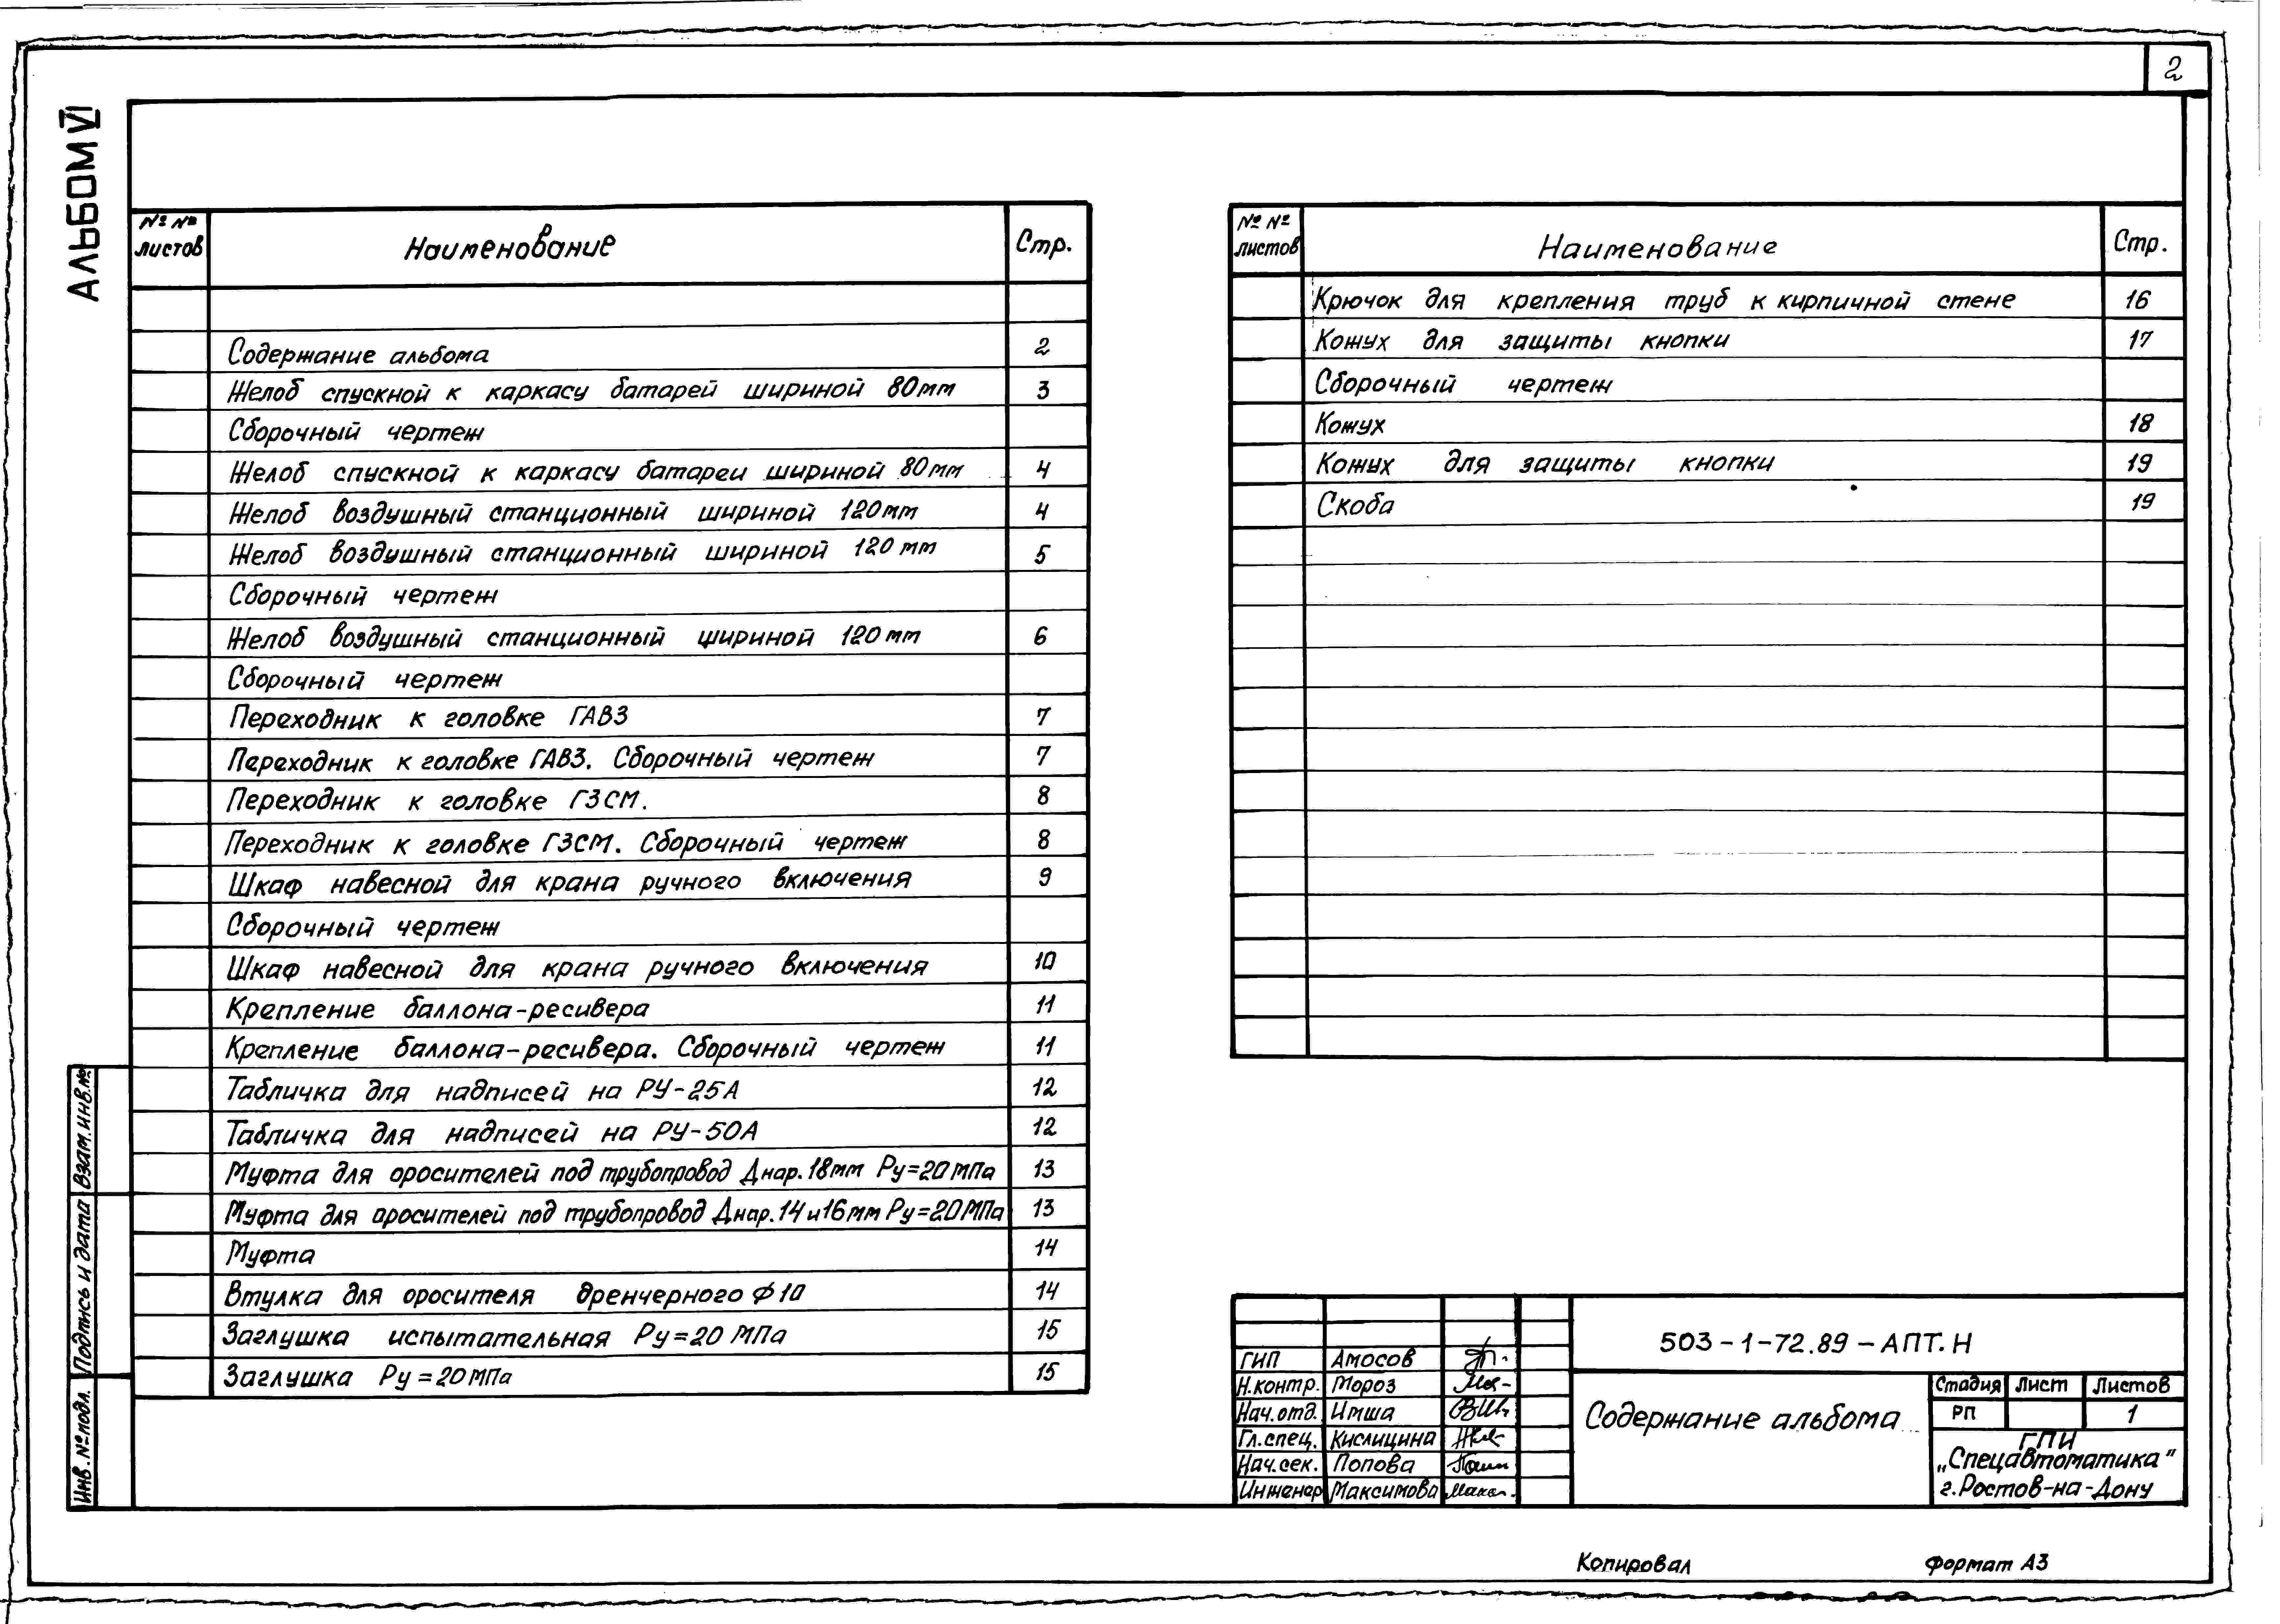 2
АЛЬБОМ VI
№ № листов Наименование Стр.
Содержание альбома 2
Желоб спускной к каркасу батарей шириной 80мм 3
Сборочный чертеж
Желоб спускной к каркасу батареи шириной 80мм 4
Желоб воздушный станционный шириной 120мм 4
Желоб воздушный станционный шириной 120мм 5
Сборочный чертеж
Желоб воздушный станционный шириной 120мм 6
Сборочный чертеж
Переходник к головке ГАВЗ 7
Переходник к головке ГАВЗ. Сборочный чертеж 7
Переходник к головке ГЗСМ. 8
Переходник к головке ГЗСМ. Сборочный чертеж 8
Шкаф навесной для крана ручного включения 9
Сборочный чертеж
Шкаф навесной для крана ручного включения 10
Крепление баллона-ресивера 11
Крепление баллона-ресивера. Сборочный чертеж 11
Табличка для надписей на РУ-25А 12
Табличка для надписей на РУ-50А 12
Муфта для оросителей под трубопровод Днар.18мм Ру=20МПа 13
Муфта для оросителей под трубопровод Днар.14и16мм Ру=20МПа 13
Муфта 14
Втулка для оросителя дренчерного ф10 14
Заглушка испытательная Ру=20МПа 15
Заглушка Ру=20МПа 15
№ № листов Наименование Стр.
Крючок для крепления труб к кирпичной стене 16
Кожух для защиты кнопки 17
Сборочный чертеж
Кожух 18
Кожух для защиты кнопки 19
Скоба 19
Взам.инв.№
Подпись и дата
Инв.№подл.
503-1-72.89-АПТ.Н
ГИП Амосов
Н.контр. Мороз
Нач.отд. Имша
Гл.спец. Кислицина
Нач.сек. Попова
Инженер Максимова
Содержание альбома
Стадия Лист Листов
РП 1
ГПИ
„Спецавтоматика"
г.Ростов-на-Дону
Копировал Формат А3